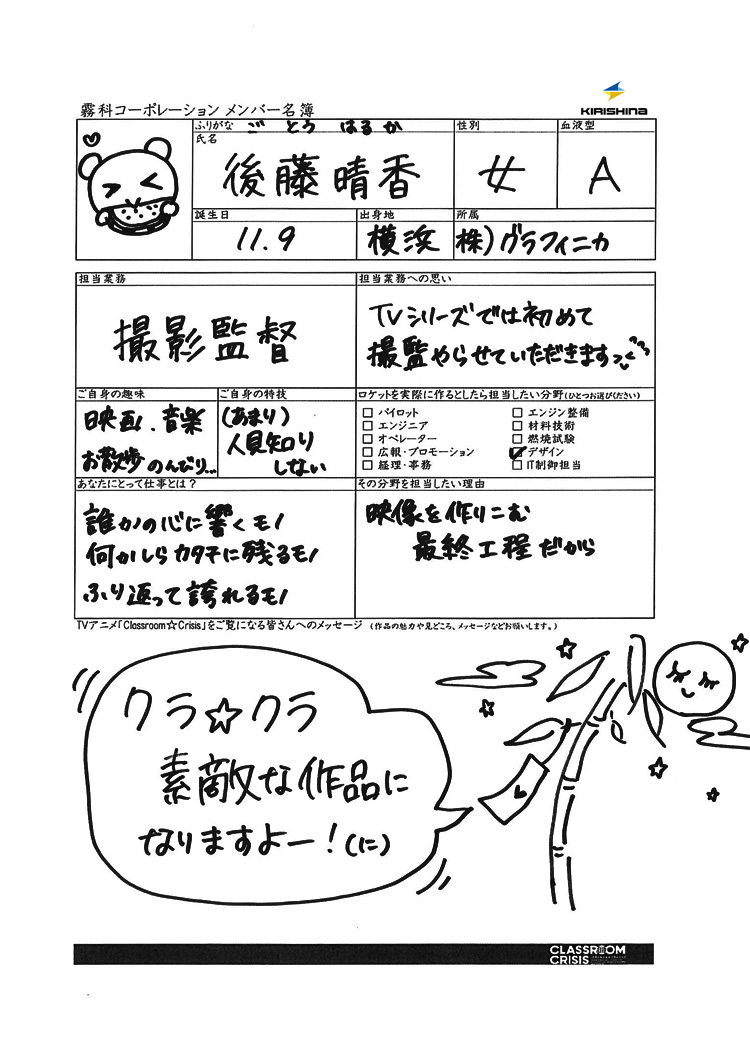 霧科コーポレーション メンバー名簿
KIRISHINA
ふりがな ごとう はるか
性別
血液型
氏名
後藤晴香
女
A
誕生日
出身地
所属
11.9
横浜
株)グラフィニカ
担当業務
担当業務への思い
撮影監督
TVシリーズでは初めて
撮監やらせていただきますっ
ご自身の趣味
ご自身の特技
ロケットを実際に作るとしたら担当したい分野(ひとつお選びください)
映画.音楽
お散歩 のんびり...
(あまり)
人見知り
しない
□ パイロット
□ エンジニア
□ オペレーター
□ 広報・プロモーション
□ 経理・事務
□ エンジン整備
□ 材料技術
□ 燃焼試験
☑ デザイン
□ IT制御担当
あなたにとって仕事とは?
その分野を担当したい理由
誰かの心に響くモノ
何かしらカタチに残るモノ
ふり返って誇れるモノ
映像を作りこむ
最終工程だから
TVアニメ「Classroom☆Crisis」をご覧になる皆さんへのメッセージ (作品の魅力や見どころ、メッセージなどお願いします。)
クラ☆クラ
素敵な作品に
なりますよー!(に)
CLASSROOM
CRISIS